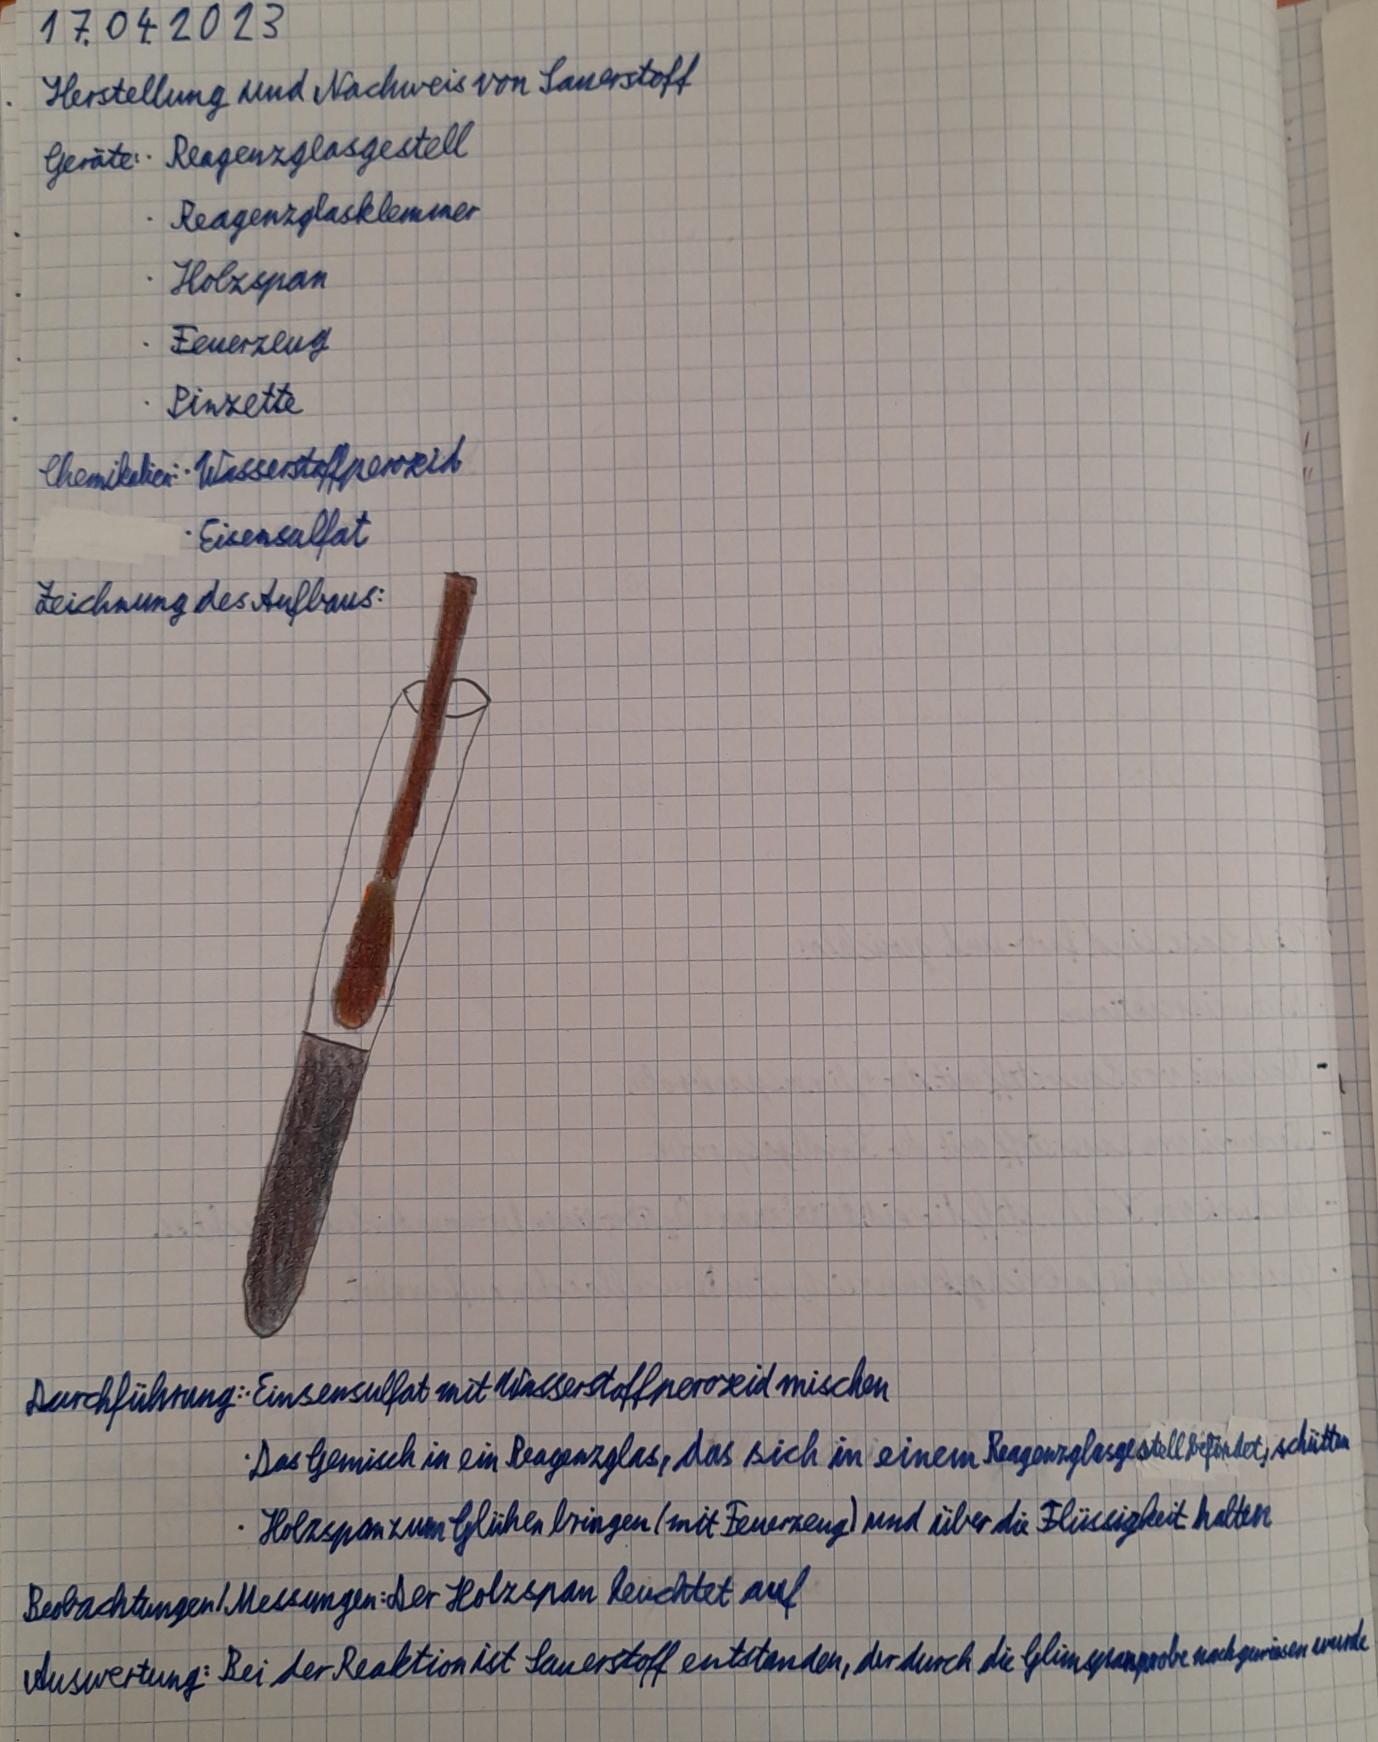 17.04.2023
Herstellung und Nachweis von Sauerstoff
Geräte: · Reagenzglasgestell
· Reagenzglasklemmer
· Holzspan
· Feuerzeug
· Pinzette
Chemikalien: · Wasserstoffperoxid
· Eisensulfat
Zeichnung des Aufbaus:
Durchführung: · Einsensulfat mit Wasserstoffperoxid mischen
· Das Gemisch in ein Reagenzglas, das sich in einem Reagenzglasgestell befindet, schütten
· Holzspan zum Glühen bringen (mit Feuerzeug) und über die Flüssigkeit halten
Beobachtungen/Messungen: Der Holzspan leuchtet auf
Auswertung: Bei der Reaktion ist Sauerstoff entstanden, der durch die Glimspanprobe nachgewiesen wurde